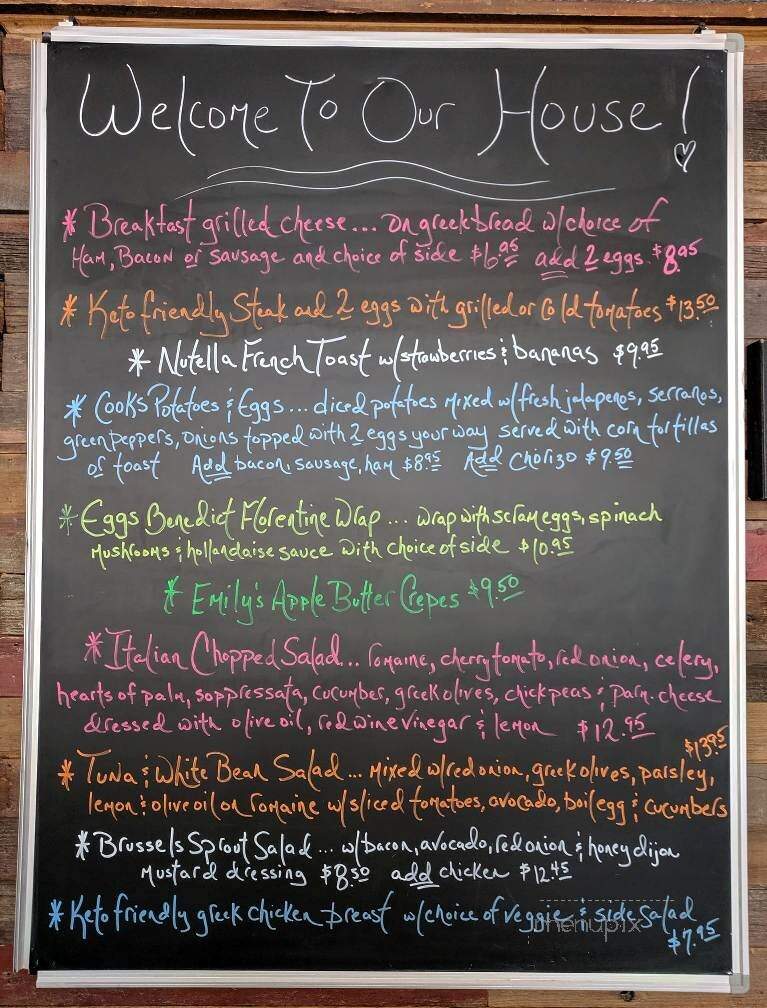 Welcome To Our House!
* Breakfast grilled cheese... on greek bread w/choice of
Ham, Bacon or sausage and choice of side $6.95 add 2 eggs $8.95
* Keto friendly Steak and 2 eggs with grilled or Cold tomatoes $13.50
* Nutella French Toast w/strawberries & bananas $9.95
* Cooks Potatoes & Eggs... diced potatoes mixed w/fresh jalapenos, serranos,
green peppers, onions topped with 2 eggs your way served with corn tortillas
or toast Add bacon, sausage, ham $8.95 Add Chorizo $9.50
* Eggs Benedict Florentine Wrap... wrap with scram eggs, spinach
Mushrooms & hollandaise sauce with choice of side $10.95
* Emily's Apple Butter Crepes $9.50
* Italian Chopped Salad... romaine, cherry tomato, red onion, celery,
hearts of palm, soppressata, cucumber, greek olives, chickpeas & parm. cheese
dressed with olive oil, red wine vinegar & lemon $12.95
$13.95
* Tuna & White Bean Salad... mixed w/red onion, greek olives, parsley,
lemon & olive oil on romaine w/sliced tomatoes, avocado, boil egg & cucumbers
* Brussels Sprout Salad... w/bacon, avocado, red onion & honey dijon
Mustard dressing $8.50 add chicken $12.45
* Keto friendly greek chicken breast w/choice of veggie & side salad
$7.95
menupix